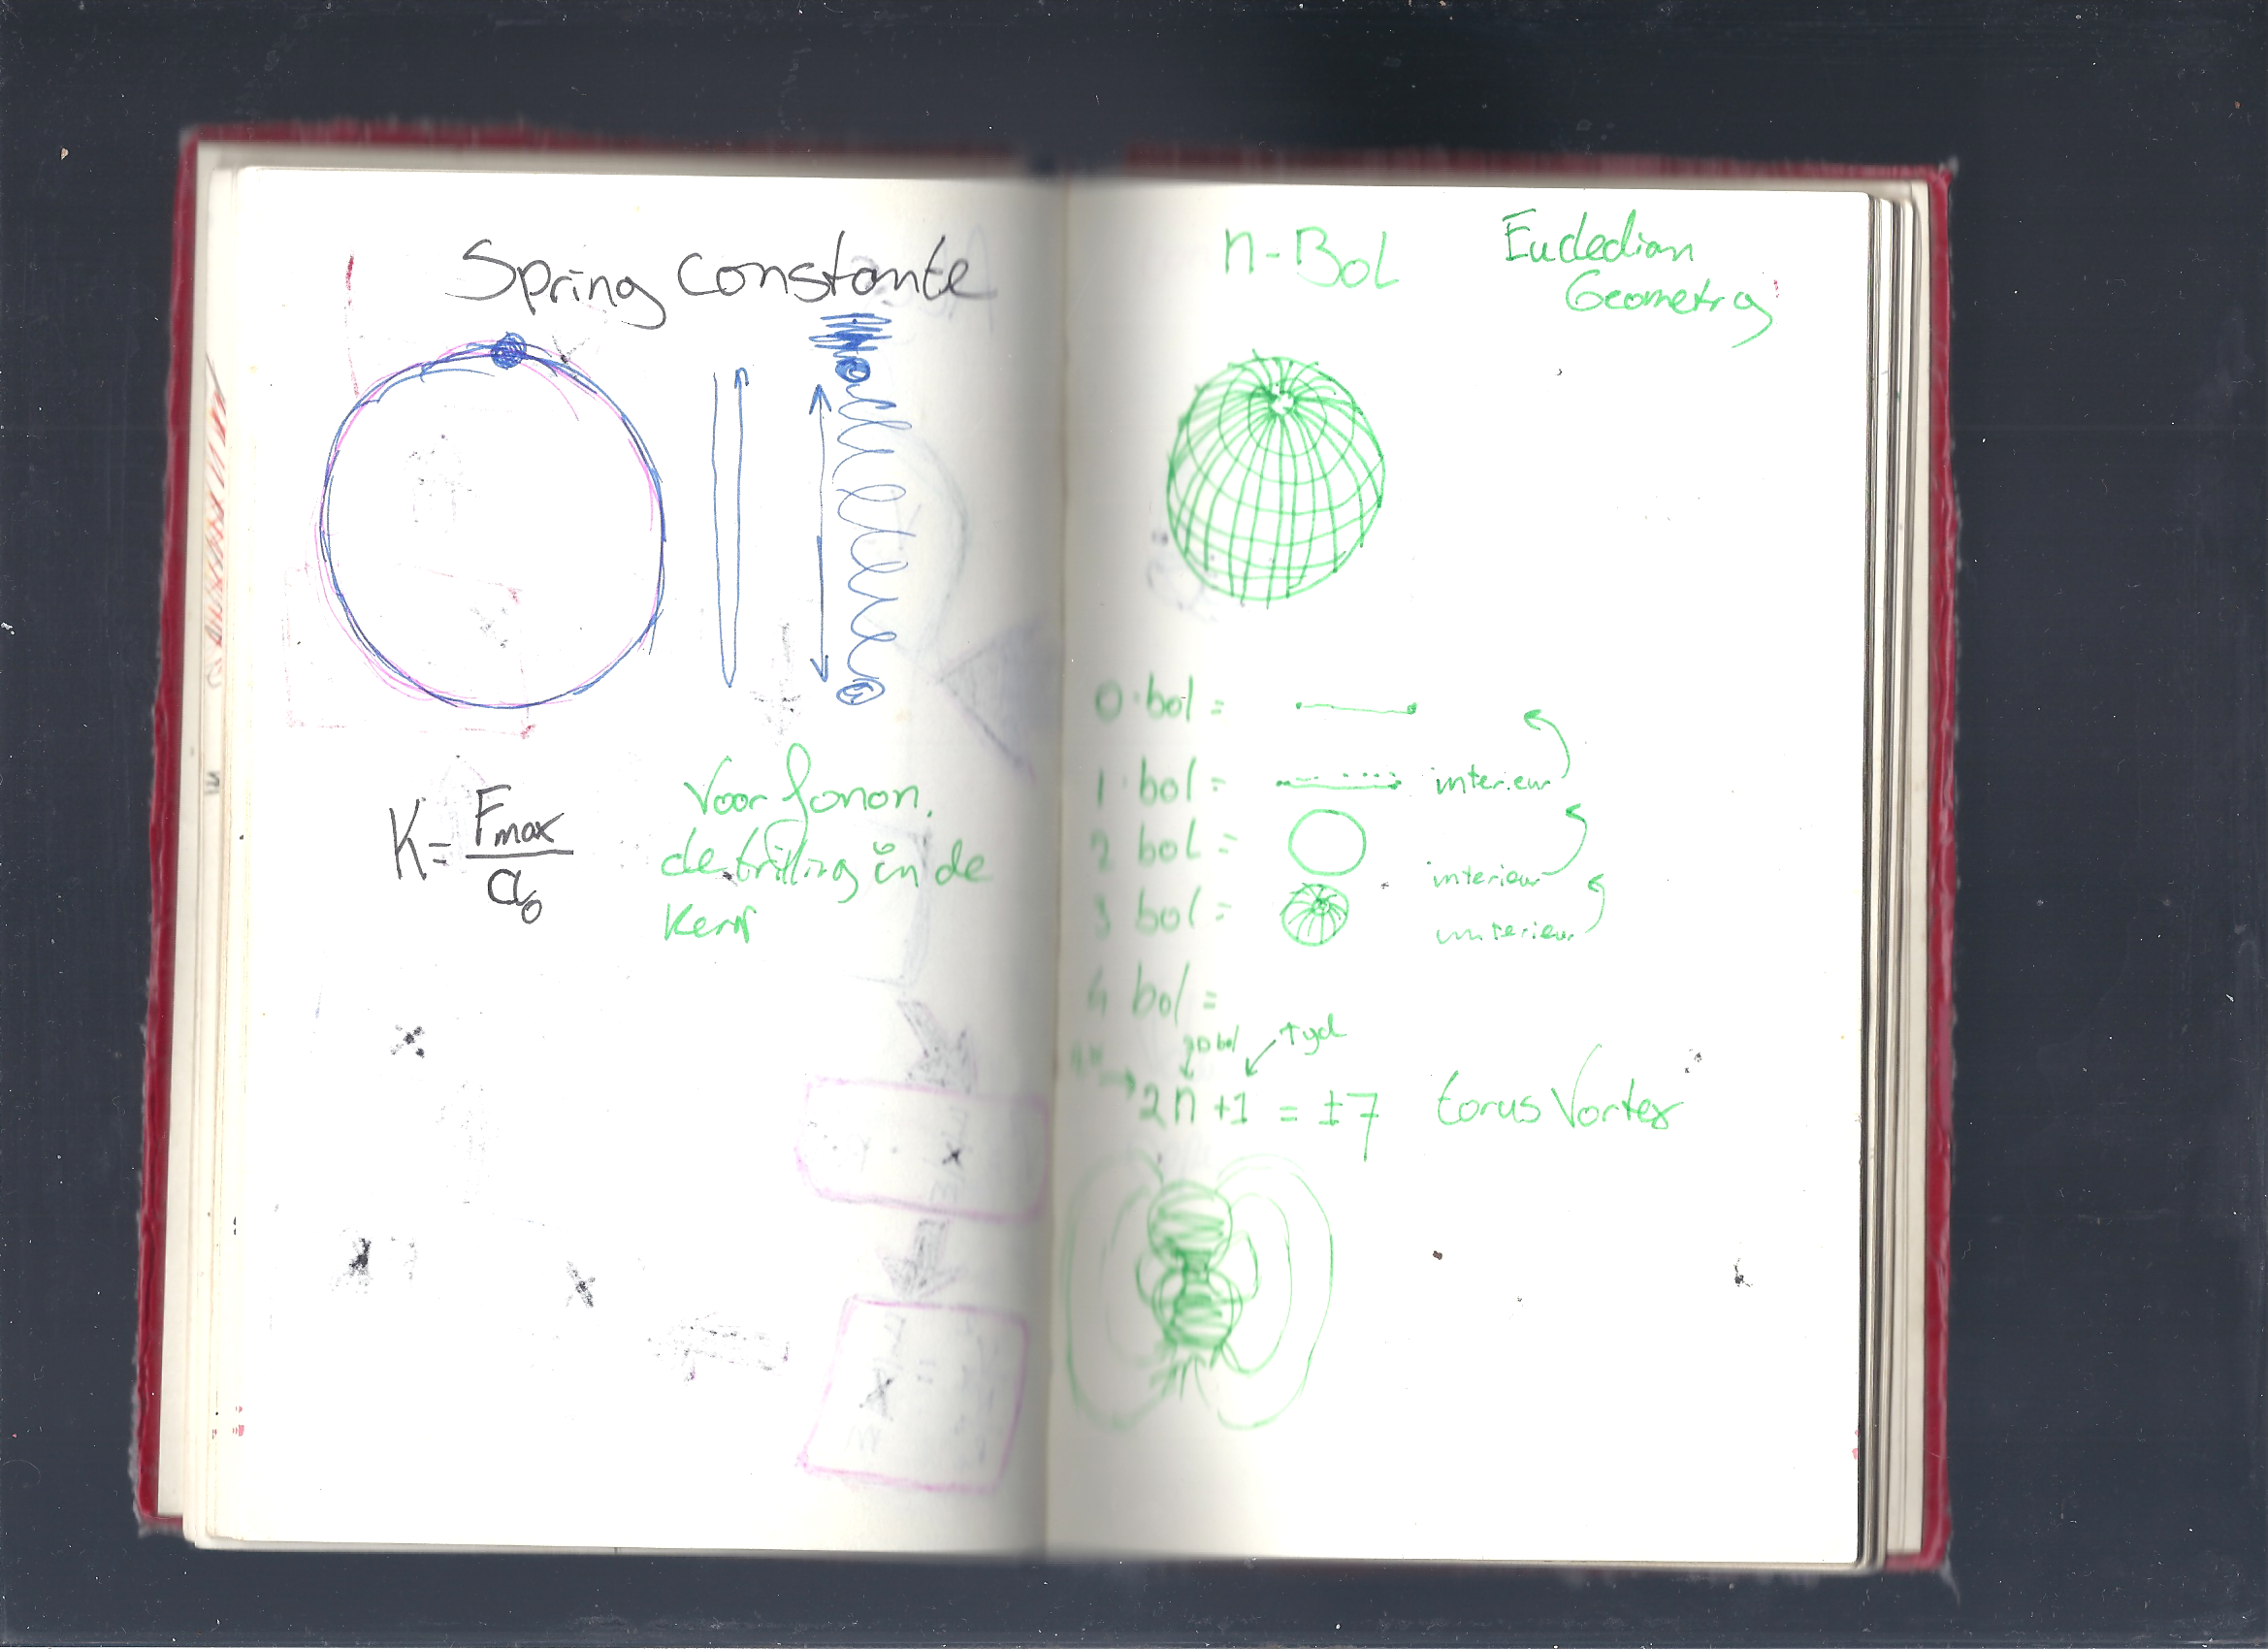 Spring constante
K = Fmax / a₀
Voor fonon.
de trilling in de
kern
n-Bol
Eucledian
Geometry
0 bol =
1 bol = interieur
2 bol =
interieur
3 bol =
interieur
4 bol =
tyd
2n +1 = ±7 torus Vortex